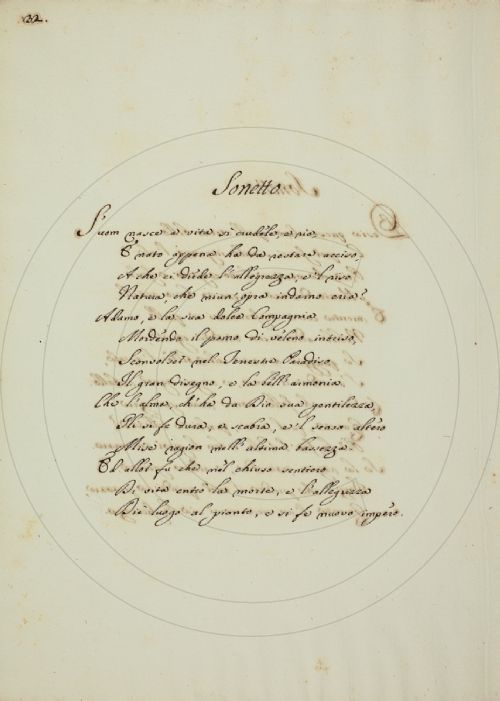 32.
Sonetto
S'uom nasce a vita sì crudele, e ria
E nato appena ha da restare ucciso,
A che ci diede l'allegrezza, e 'l riso
Natura, che niun' opra indarno cria?
Adamo, e la sua dolce Compagnia
Mordendo il pomo di veleno intriso,
Sconvolser nel Terrestre Paradiso
Il gran disegno, e la bell' armonia.
Che l'alma, ch' ha da Dio sua gentilezza,
Gli si fe dura, e scabia, e 'l senso altero
Mise ragion nell' albima bassezza.
Ed allor fu che nel chiuso sentiero
Di vita entrò la morte, e l'allegrezza
Diè luogo al pianto, e si fe nuovo impero.